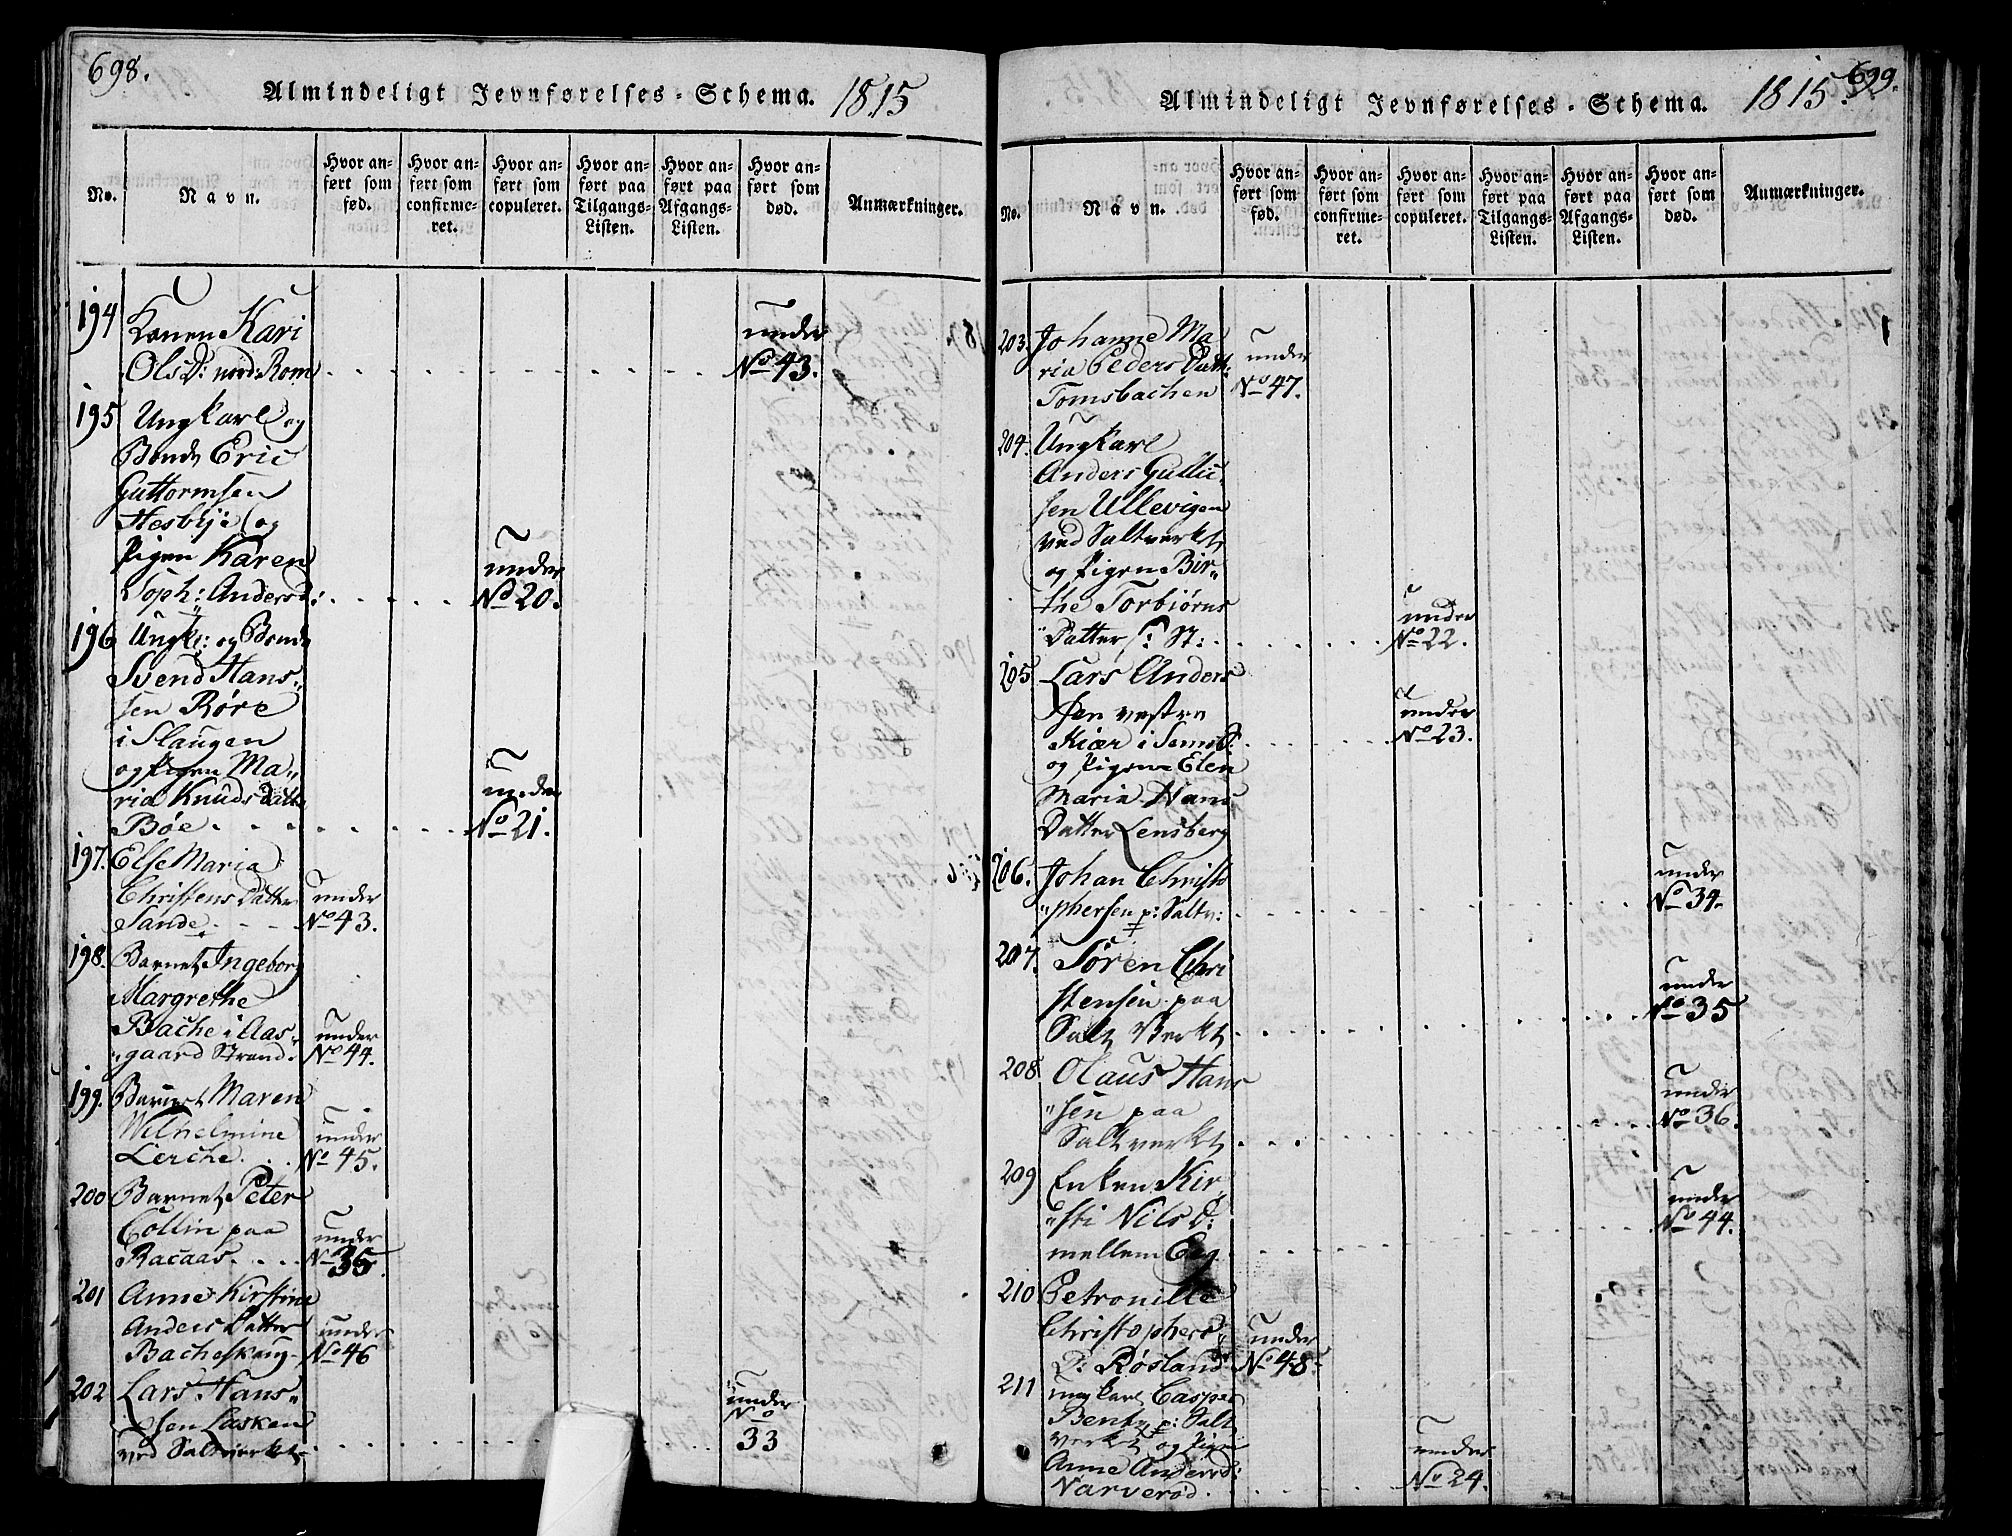 698.
Almindeligt Jevnførelses-Schema. 1815
No.
Navn.
Hvor an-
ført som
fød.
Hvor an-
ført som
confirme-
ret.
Hvor an-
ført som
copuleret.
Hvor an-
ført paa
Tilgangs-
Listen.
Hvor an-
ført paa
Afgangs-
Listen.
Hvor an-
ført som
død.
Anmærkninger.
194 Konen Kari under
OlsD: nord: Rom No 43.
195 Ungkarl og
Bonde Eric
Guttormsen
Hesbye og
Pigen Karen under
Soph: Andersd: No 20.
196 Ungk: og Bonde
Svend Hans„
sen Røre
i Slaugen
og Pigen Ma„
ria Knuds Datter under
Bøe No 21.
197. Else Maria
Christens Datter under
Sande No 43.
198. Barnet Ingeborg
Margrethe
Bache i Aas„ under
„gaard Strand. No 44.
199. Barnet Maren
Wilhelmine under
Lerche No 45.
200 Barnet Peter
Collin paa under
Racaas No 35.
201 Anne Kirstine
Anders Datter under
Bacheskaug No 46
202 Lars Hans„ under
sen Lasken No
ved Saltverket 33
699.
Almindeligt Jevnførelses-Schema. 1815.
No.
Navn.
Hvor an-
ført som
fød.
Hvor an-
ført som
confirme-
ret.
Hvor an-
ført som
copuleret.
Hvor an-
ført paa
Tilgangs-
Listen.
Hvor an-
ført paa
Afgangs-
Listen.
Hvor an-
ført som
død.
Anmærkninger.
203. Johanne Ma
ria Peders Datt: under
Tomsbachen No 47.
204. Ungkarl
Anders Gullic
sen Ullevigen
ved Saltverket
og Pigen Bir„
the Torbiørns under
Datter St: No 22.
205. Lars Anders
sen vestre under
Kiær i Semb S. No 23.
og Pigen Elen
Maria Hans
Datter Lensberg
206. Johan Christo under
„phersen p: Saltv: No 34.
207. Sören Chri
stensen paa under
Salt Verket No 35
208. Olaus Hans
„sen paa under
Saltverket No 36.
209 Enken Kir„
„sti Nils D: under
mellem Eeg No 44.
210 Petronille
Christophers under
D: Røsland No 48.
211 ungkarl Casper
Bentz p: Salt
verket og Pigen
Anne Andersd: under
Narverød. No 24.